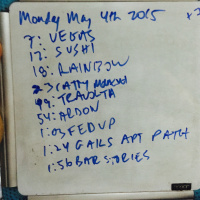 Monday May 4th 2015
7: VEGAS
12: SUSHI
18: RAINBOW
23: CATHY
49: TRAVOLTA
54: ARDON
1:03 FED UP
1:24 GAILS APT PATH
1:56 BAR STORIES